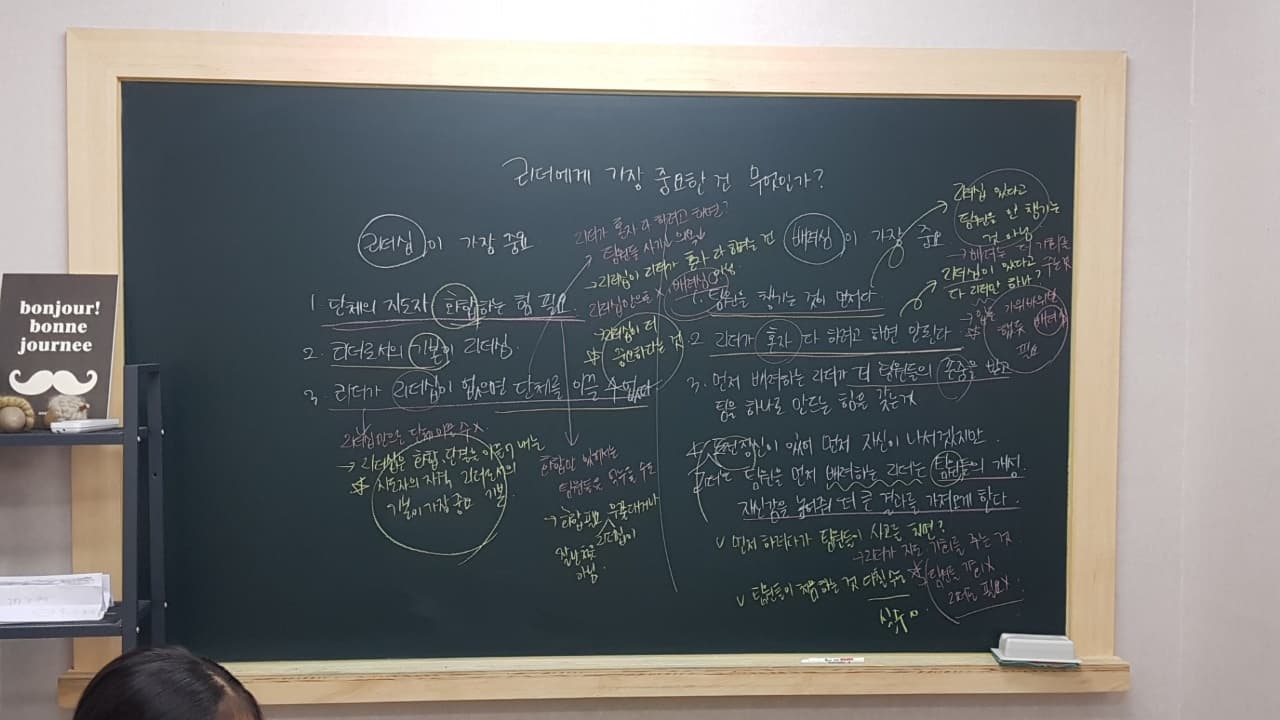 bonjour!
bonne
journee
리더에게 가장 중요한 건 무엇인가?
리더쉽이 가장 중요
1. 단체의 지도자 화합하는 힘 필요
2. 리더로서의 기본이 리더쉽
3. 리더가 리더쉽이 없으면 단체를 이끌 수 없다
리더가 혼자 다 하려고 하면?
팀원들 사기↓ 의욕↓
→ 리더쉽이 리더가 혼자 다 하려는 건
아님
리더쉽만으로 X 배려심
→ 리더쉽이 더
→ 리더쉽은 화합, 단결을 이끌어 내는
지도자의 자격 리더로서의
기본이 가장 중요 기본
화합만 있어서는
→ 화합 필요
아님.
배려심이 가장 중요
1. 팀원을 챙기는 것이 먼저다
2. 리더가 혼자 다 하려고 하면 안된다
3. 먼저 배려하는 리더가 더 팀원들의 존중을 받고
팀을 하나로 만드는 힘을 갖는것
정신이 있어 먼저 자신이 나서겠지만.
팀원을 먼저 배려하는 리더는 팀원들의 개성
자신감을 높여줘 더 큰 결과를 가져오게 한다.
v 먼저 하려다가 팀원들이 사고를 치면?
→ 리더가 지도 기회를 주는 것
v 팀원들이 체험하는 것 다칠 수
팀원들 관리 X
리더는 필요 X
실수
리더쉽 있다고
팀원을 안 챙기는
것 아님
→ 배려는 더 기회를
주는 것
리더쉽이 있다고
다 리더만 하나?
배려심
필요